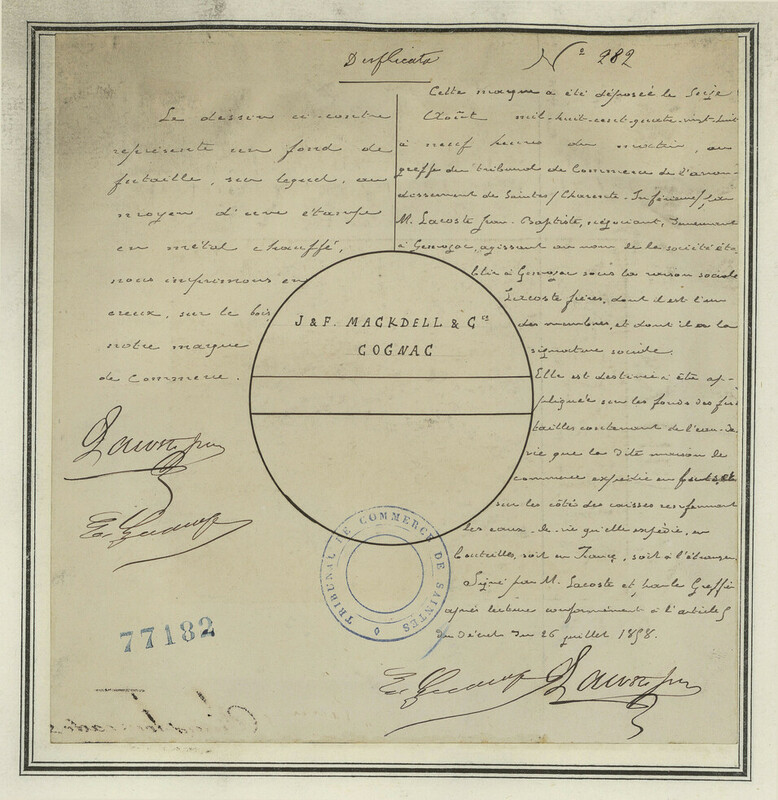 Duplicata
Nº 282
Le dessin ci-contre
représente un fond de
futaille, sur lequel, au
moyen d'une étampe
en métal chauffé,
nous imprimons en
creux, sur le bois,
notre marque
de Commerce.
Cette marque a été déposée le Seize
Août mil-huit-cent-quatre-vingt-huit
à neuf heures du matin, au
greffe du tribunal de Commerce de l'arron-
dissement de Saintes (Charente-Inférieure), par
M. Lacoste Jean-Baptiste, négociant, demeurant
à Gemozac, agissant au nom de la société éta-
blie à Gemozac sous la raison sociale
Lacoste frères, dont il est l'un
des membres, et dont il a la
signature sociale.
Elle est destinée à être ap-
pliquée sur les fonds des fu-
tailles contenant de l'eau-de-
vie que la dite maison de
commerce expédie en futs, et
sur les côtés des caisses renfermant
les eaux-de-vie qu'elle expédie, en
bouteilles, soit en France, soit à l'étranger
Signé par M. Lacoste et par le Greffier
après lecture conformément à l'article 5
du Décret du 26 juillet 1858.
J & F. MACKDELL & Cie
COGNAC
TRIBUNAL DE COMMERCE DE SAINTES
77182